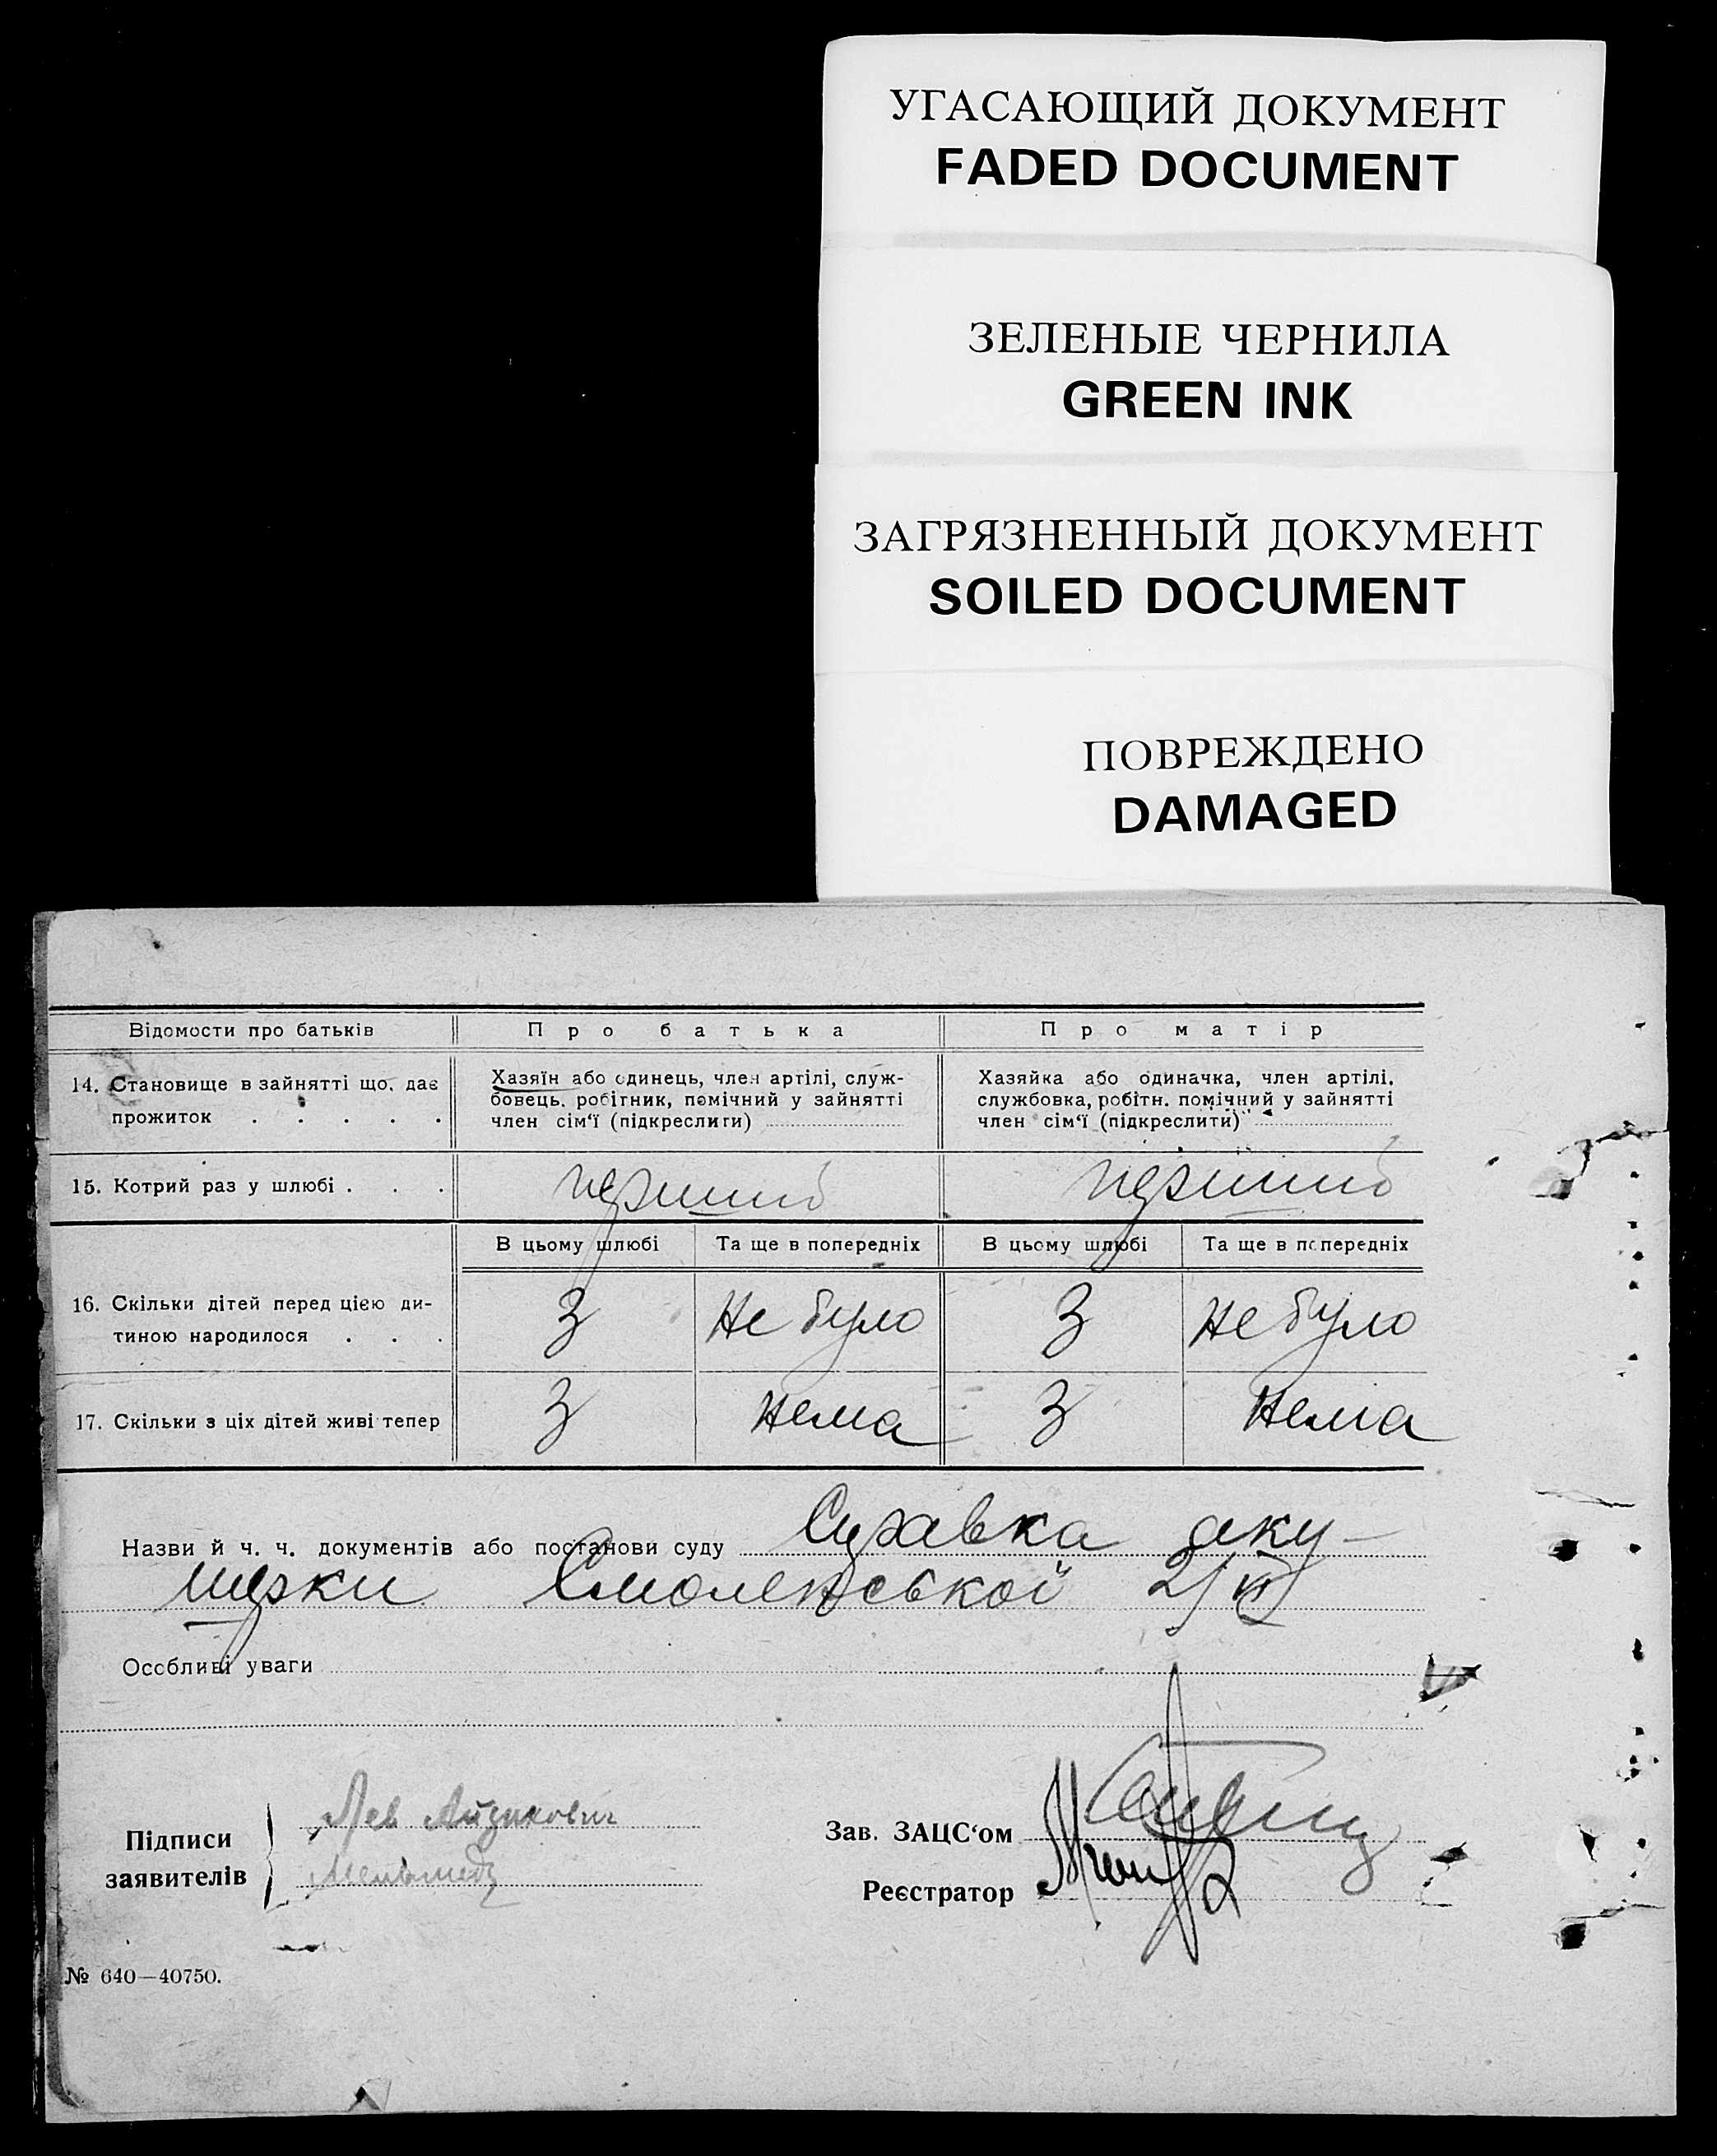 УГАСАЮЩИЙ ДОКУМЕНТ
FADED DOCUMENT
ЗЕЛЕНЫЕ ЧЕРНИЛА
GREEN INK
ЗАГРЯЗНЕННЫЙ ДОКУМЕНТ
SOILED DOCUMENT
ПОВРЕЖДЕНО
DAMAGED
Відомости про батьків
Про батька
Про матір
14. Становище в зайнятті що дає
прожиток . . . . .
Хазяїн або одинець, член артілі, служ-
бовець, робітник, помічний у зайнятті
член сім'ї (підкреслити)
Хазяйка або одиначка, член артілі,
службовка, робітн. помічний у зайнятті
член сім'ї (підкреслити)
15. Котрий раз у шлюбі . . .
перший
перший
В цьому шлюбі
Та ще в попередніх
В цьому шлюбі
Та ще в попередніх
16. Скільки дітей перед цією ди-
тиною народилося . . .
3
Не було
3
Не було
17. Скільки з ціх дітей живі тепер
3
Нема
3
Нема
Назви й ч. ч. документів або постанови суду Справка аку-
шерки Смоленської 2/VII
Особливі уваги
Підписи
заявителів
Лев Айзикович
Зав. ЗАЦС'ом
Реєстратор
№ 640—40750.